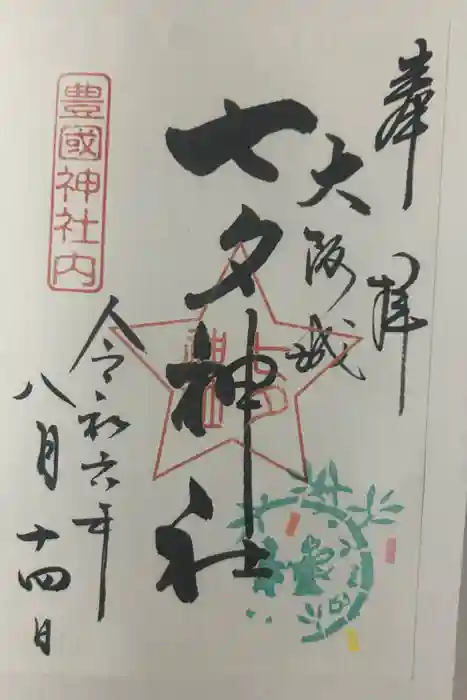 奉拝
大阪城
七夕神社
豊國神社内
令和六年
八月十四日